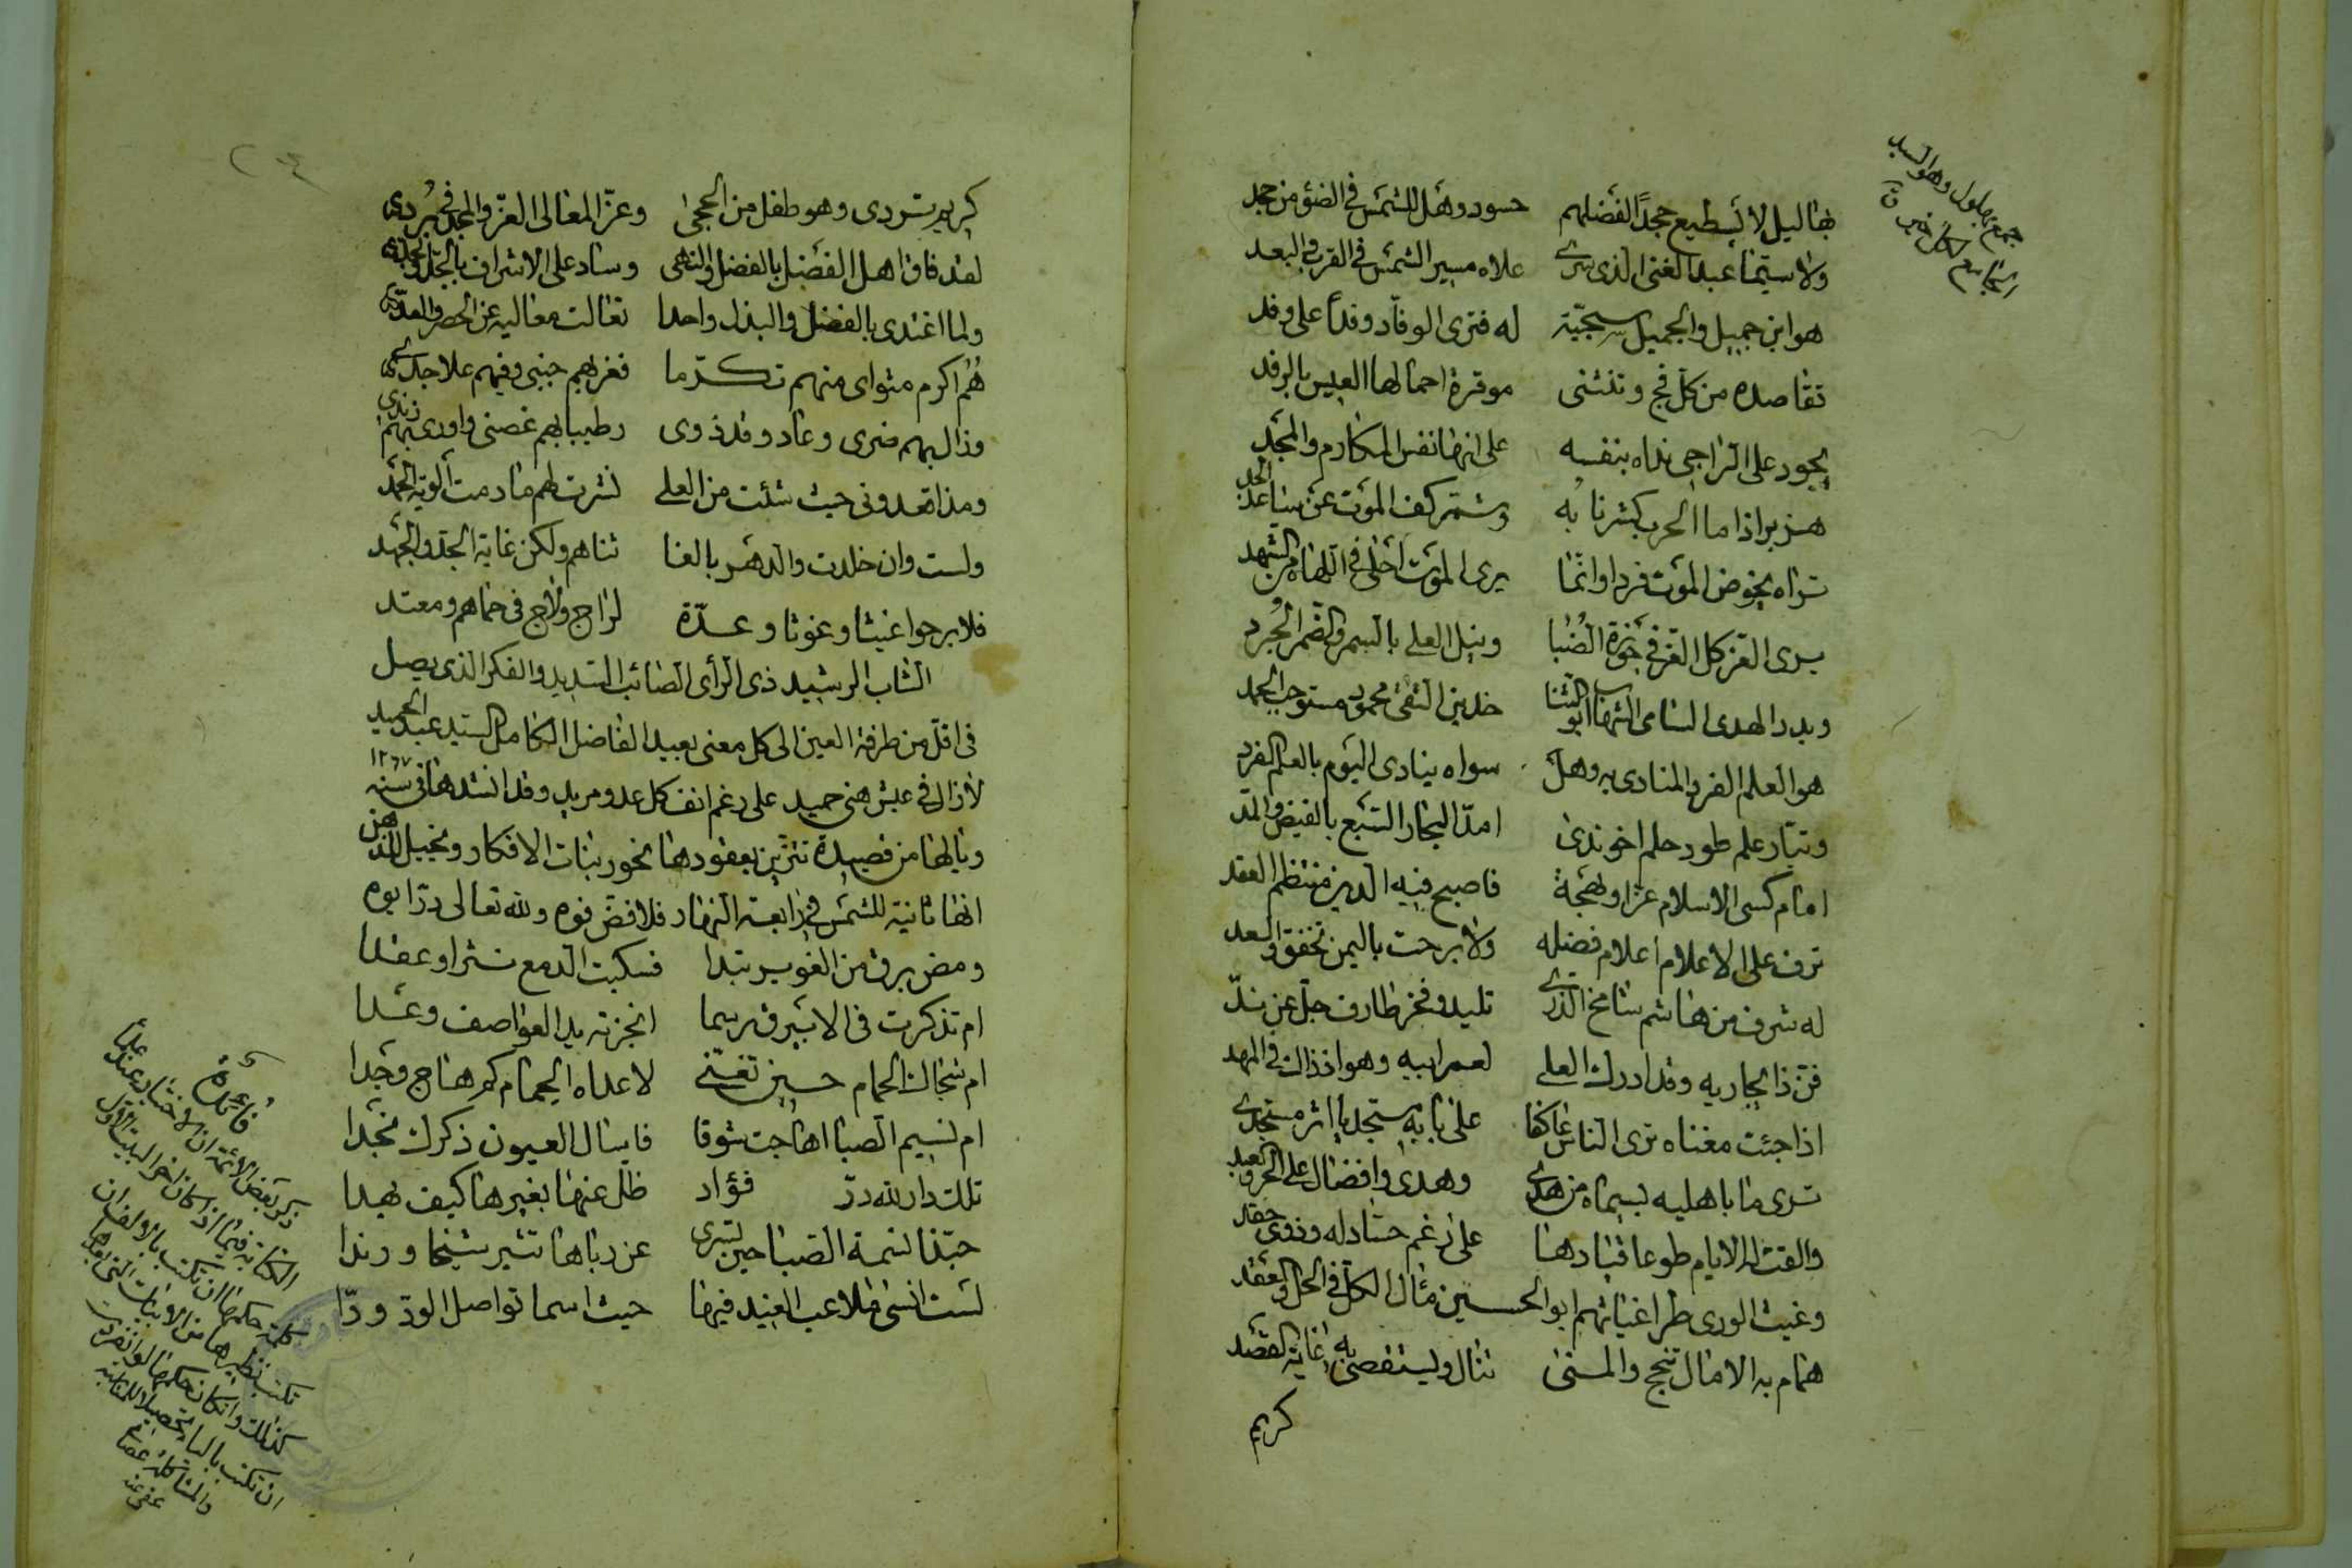 جمع بهلول وهو السيد
الجامع لكل خير ق
بهاليل لا يسطيع جحدًا لفضلهم حسود وهل للشمس في الضوء من جحد
ولا سيّما عبد الغنى الذى سرى علاه مسير الشمس في القرب والبعد
هو ابن جميل والجميل سجيّة له فترى الوفّاد وفدًا على وفد
تقاصده من كل فج وتنثنى موقرة احمالها العيس بالرفد
يجود على الراجى نداه بنفسه على انها نفس المكارم والمجد
هزبر اذا ما الحرب كشر نابه وشمّر كف الموت عن ساعد الجد
تراه يخوض الموت فردا وانما يرى الموت احلى في اللهاة من الشهد
يرى العز كل العز في حوزة الضبا ونيل العلى بالسمر والضمر الجُرد
وبدر الهدى السامى الشهاب ابو الثنا خدين التقى محمود مستوجب الحمد
هو العلم الفرد المنادى به وهل سواه ينادى اليوم بالعلم الفرد
وتيّار علم طود حلم اخو ندى امدّ البحار السبع بالفيض والمدّ
امام كسى الاسلام عزا وبهجة فاصبح فيه الدين منتظم العقد
ترف على الاعلام اعلام فضله ولا برحت باليمن تخفق والسعد
له شرف من هاشم شامخ الذرى تليد وفخر طارف جلّ عن ندّ
فمن ذا يجاريه وقد ادرك العلى لعمر ابيه وهو اذ ذاك في المهد
اذا جئت مغناه ترى الناس عاكفا على بابه مستجديا اثر مستجدى
ترى ما باهليه بسيماه من هدى وهدى وافضال على الحر والعبد
والقت له الايام طوعا قيادها على رغم حسّاد له وذوى حقد
وغيث الورى طرا غياثهم ابو الحسين مثال الكل في الحل والعقد
همام به الامال تنجح والمنى تنال ويستقصى به غاية القصد
كريم
كريم تردى وهو طفل من الحجى وعزّ المعالى العزّ والمجد في بُردى
لقد فاق اهل الفضل بالفضل والنهى وساد على الاشراف بالجدّ والجد
ولما اغتدى بالفضل والبذل واحدا تعالت معاليه عن الحصر والعدّ
هُم اكرم مثواى منهم تكرّما فعز بهم جنبى وفيهم علا جدى
وذا لبهم مثرى وعاد وقد ذوى رطيبا بهم غصنى واورى بهم زندى
ومذ اقعدونى حيث شئت من العلى نشرت لهم ما دمت الوية الحمد
ولست وان خلدت والدهر بالغا ثناهم ولكن غاية الجد والجهد
فلا برحوا غيثا وغوثا وعدّة لراج ولاج فى حماهم ومعتد
الشاب الرشيد ذى الرأى الصائب السديد والفكر الذى يصل
فى اقل من طرفة العين الى كل معنى بعيد الفاضل الكامل السيد عبد الحميد
لا زال في عيش هنى حميد على رغم انف كل عدو مريد وقد انشدها فى سنة ١٢٦٧
ويا لها من قصيدة تتزين بعقودها نحور بنات الافكار ويخيل للذهن
انها ثانية للشمس في رابعة النهار فلا فض فوه ولله تعالى درّ ابوه
ومض برق من الغوير تبدا فسكبت الدمع نثرا وعقدا
ام تذكرت فى الابيرق ريما انجزته يد العواصف وعدا
ام شجاك الحمام حسين تغنّى لا عداه الحمام كم هاج وجدا
ام نسيم الصبا اهاجت شوقا فاسال العيون ذكرك نجدا
تلك دار لله درّ فؤاد ظل عنها بغيرها كيف يهدا
حبّذا نسمة الصبا حين تسرى عن رباها تثير شيحا ورندا
لست انسى ملاعب الغيد فيها حيث اسما تواصل الود ودّا
فائدة
ذكر بعض الائمة ان الاختيار عند علماء
الكتابة فيما اذا كان اخر البيت الاول
كلمة حكمها ان تكتب بالالف ان
تكتب نظيرها من الابيات التى بعدها
كذلك وان كان حكمها لو انفردت
ان تكتب باليا تحصيلا للمناسبة
والمشاكلة
عفى عنه